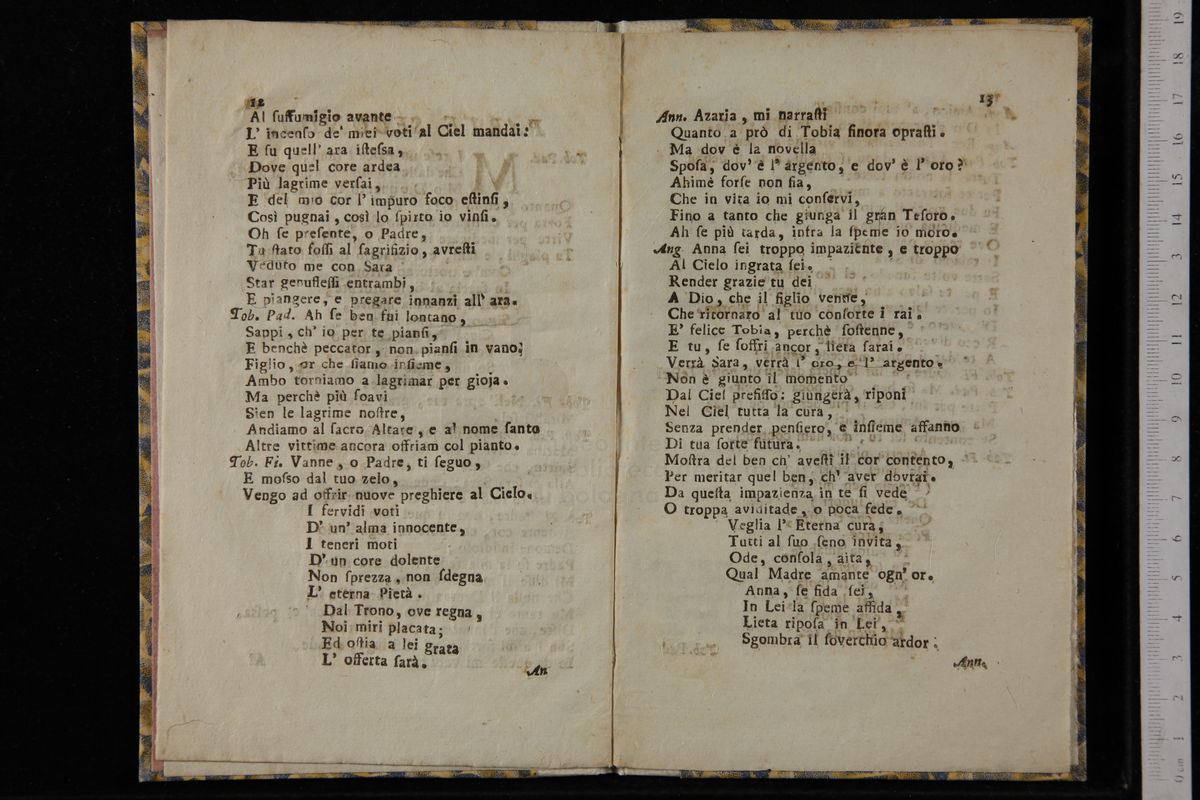 12
Al ſuffumigio avante
L' incenſo de' miei voti al Ciel mandai:
E fu quell' ara iſteſsa,
Dove quel core ardea
Più lagrime verſai,
E del mio cor l' impuro foco eſtinſi,
Così pugnai, così lo ſpirto io vinſi.
Oh ſe preſente, o Padre,
Tu ſtato foſſi al ſagrifizio, avreſti
Veduto me con Sara
Star genufleſſi entrambi,
E piangere, e pregare innanzi all' ara.
Tob. Pad. Ah ſe ben fui lontano,
Sappi, ch' io per te pianſi,
E benchè peccator, non pianſi in vano;
Figlio, or che ſiamo inſieme,
Ambo torniamo a lagrimar per gioja.
Ma perchè più ſoavi
Sien le lagrime noſtre,
Andiamo al ſacro Altare, e al nome ſanto
Altre vittime ancora offriam col pianto.
Tob. Fi. Vanne, o Padre, ti ſeguo,
E moſso dal tuo zelo,
Vengo ad offrir nuove preghiere al Cielo.
I fervidi voti
D' un' alma innocente,
I teneri moti
D' un core dolente
Non ſprezza, non ſdegna
L' eterna Pietà.
Dal Trono, ove regna,
Noi miri placata;
Ed oſtia a lei grata
L' offerta ſarà.
An
13
Ann. Azaria, mi narraſti
Quanto a prò di Tobia finora opraſti.
Ma dov è la novella
Spoſa, dov' è l' argento, e dov' è l' oro?
Ahimè forſe non fia,
Che in vita io mi conſervi,
Fino a tanto che giunga il gran Teſoro.
Ah ſe più tarda, infra la ſpeme io moro.
Ang Anna ſei troppo impaziente, e troppo
Al Cielo ingrata ſei.
Render grazie tu dei
A Dio, che il figlio venne,
Che ritornaro al tuo conſorte i rai.
E' felice Tobia, perchè ſoſtenne,
E tu, ſe ſoffri ancor, lieta ſarai.
Verrà Sara, verrà l' oro, e l' argento.
Non è giunto il momento
Dal Ciel prefiſſo: giungerà, riponi
Nel Ciel tutta la cura,
Senza prender penſiero, e inſieme affanno
Di tua ſorte futura.
Moſtra del ben ch' aveſti il cor contento,
Per meritar quel ben, ch' aver dovrai.
Da queſta impazienza in te ſi vede
O troppa aviditade, o poca fede.
Veglia l' Eterna cura,
Tutti al ſuo ſeno invita,
Ode, conſola, aita,
Qual Madre amante ogn' or.
Anna, ſe fida ſei,
In Lei la ſpeme affida,
Lieta ripoſa in Lei,
Sgombra il ſoverchio ardor.
Ann.